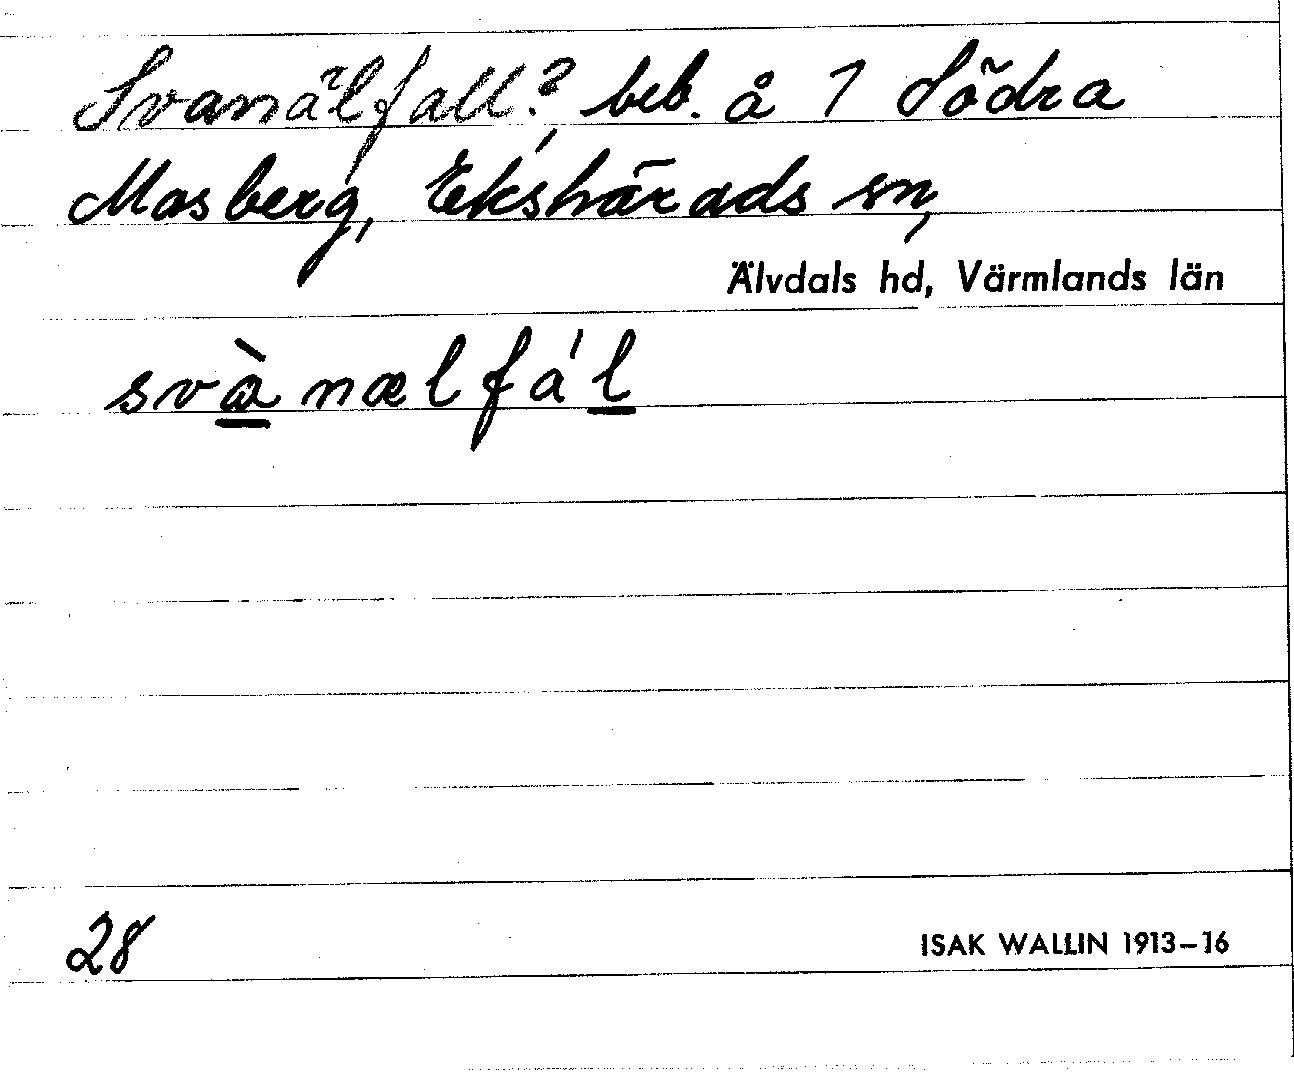 Svanälfall?, beb. å 1 Södra
Mosberg, Ekshärads sn,
Älvdals hd, Värmlands län
svànælfá'l
28
ISAK WALLIN 1913–16